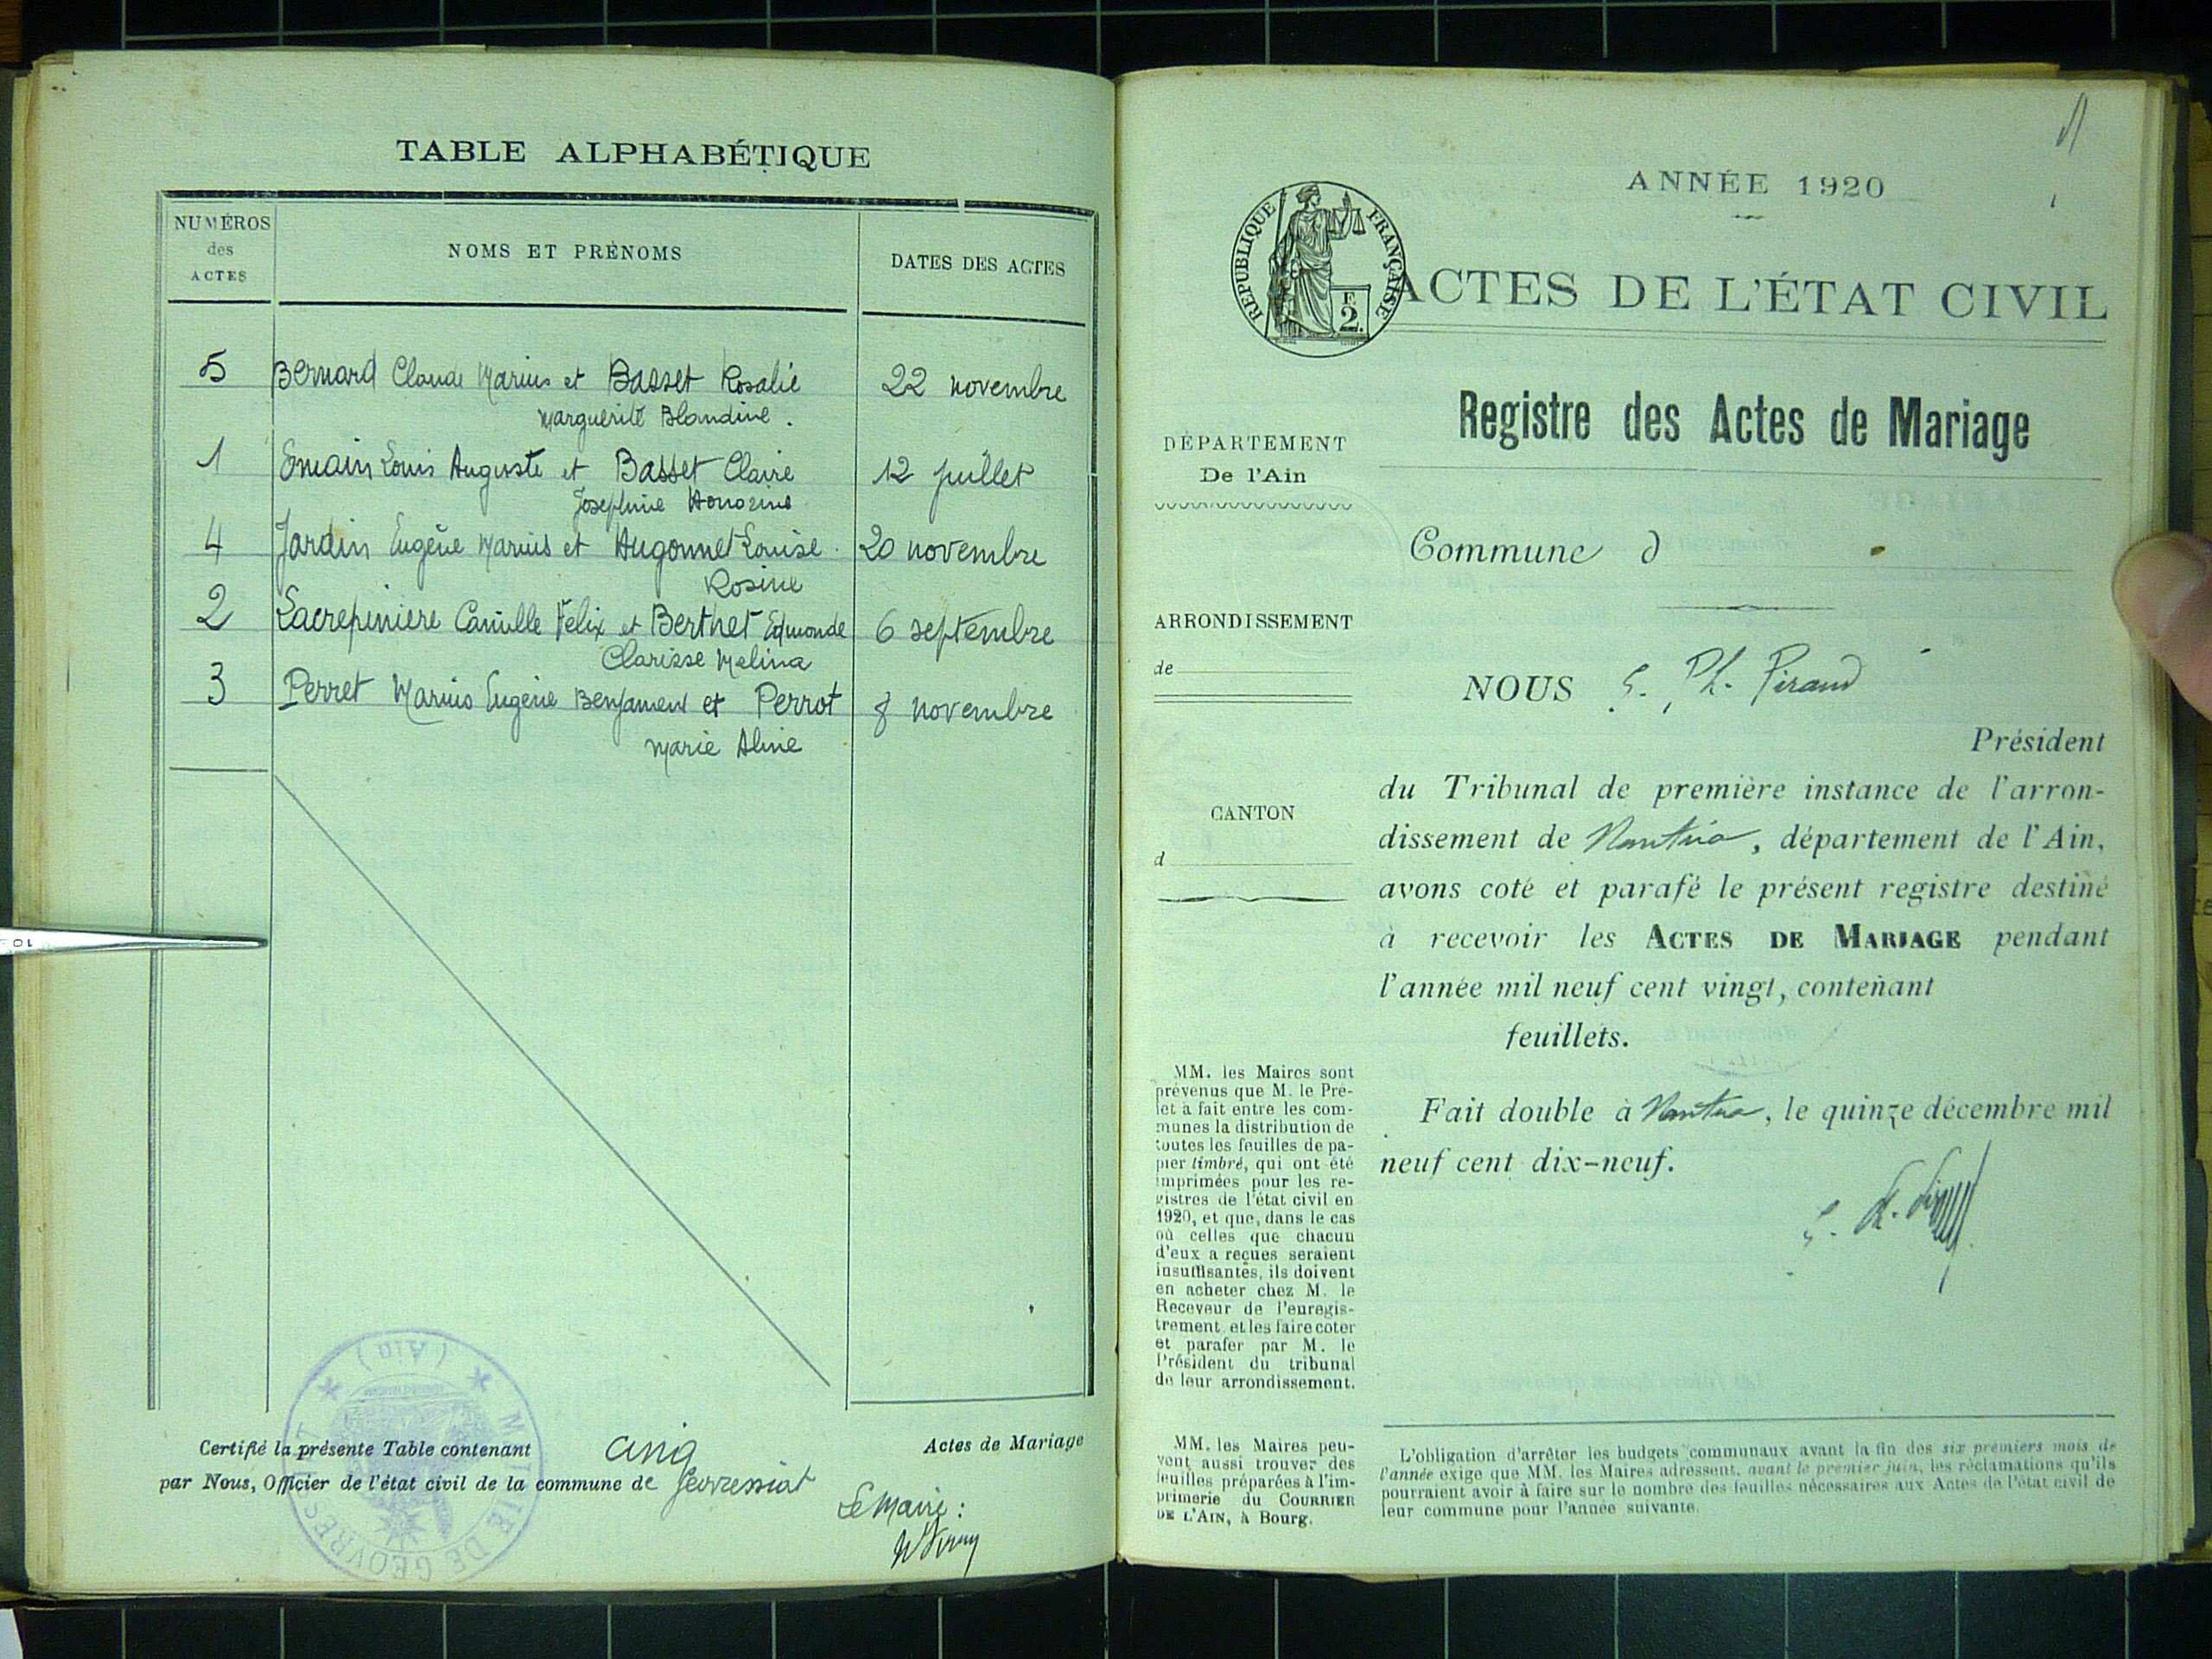 TABLE ALPHABÉTIQUE
NUMÉROS
des
ACTES
NOMS ET PRÉNOMS
DATES DES ACTES
5 Bernard Claude Marius et Basset Rosalie 22 novembre
Marguerite Blandine.
1 Emain Louis Auguste et Basset Claire 12 juillet
Josephine Honorine
4 Jardin Eugène Marius et Augonnet Louise 20 novembre
Rosine
2 Lacrepiniere Camille Félix et Berthet Edmonde 6 septembre
Clarisse Melina
3 Perret Marius Eugène Benjament et Perrot 8 novembre
Marie Aline
Certifié la présente Table contenant cinq Actes de Mariage
par Nous, Officier de l'état civil de la commune de Geovressiat
Le Maire:
MAIRIE DE GEOVRESSIAT
(Ain)
ANNÉE 1920
RÉPUBLIQUE FRANÇAISE
F.
2.
ACTES DE L'ÉTAT CIVIL
Registre des Actes de Mariage
DÉPARTEMENT
De l'Ain
Commune d
ARRONDISSEMENT
de
NOUS G. Ph. Piraud
Président
du Tribunal de première instance de l'arron-
dissement de Nantua, département de l'Ain,
avons coté et parafé le présent registre destiné
à recevoir les ACTES DE MARIAGE pendant
l'année mil neuf cent vingt, contenant
feuillets.
CANTON
d
Fait double à Nantua, le quinze décembre mil
neuf cent dix-neuf.
MM. les Maires sont
prévenus que M. le Pré-
fet a fait entre les com-
munes la distribution de
toutes les feuilles de pa-
pier timbré, qui ont été
imprimées pour les re-
gistres de l'état civil en
1920, et que, dans le cas
où celles que chacun
d'eux a reçues seraient
insuffisantes, ils doivent
en acheter chez M. le
Receveur de l'enregis-
trement et les faire coter
et parafer par M. le
Président du tribunal
de leur arrondissement.
MM. les Maires peu-
vent aussi trouver des
feuilles préparées à l'im-
primerie du COURRIER
DE L'AIN, à Bourg.
L'obligation d'arrêter les budgets communaux avant la fin des six premiers mois de
l'année exige que MM. les Maires adressent, avant le premier juin, les réclamations qu'ils
pourraient avoir à faire sur le nombre des feuilles nécessaires aux Actes de l'état civil de
leur commune pour l'année suivante.
10